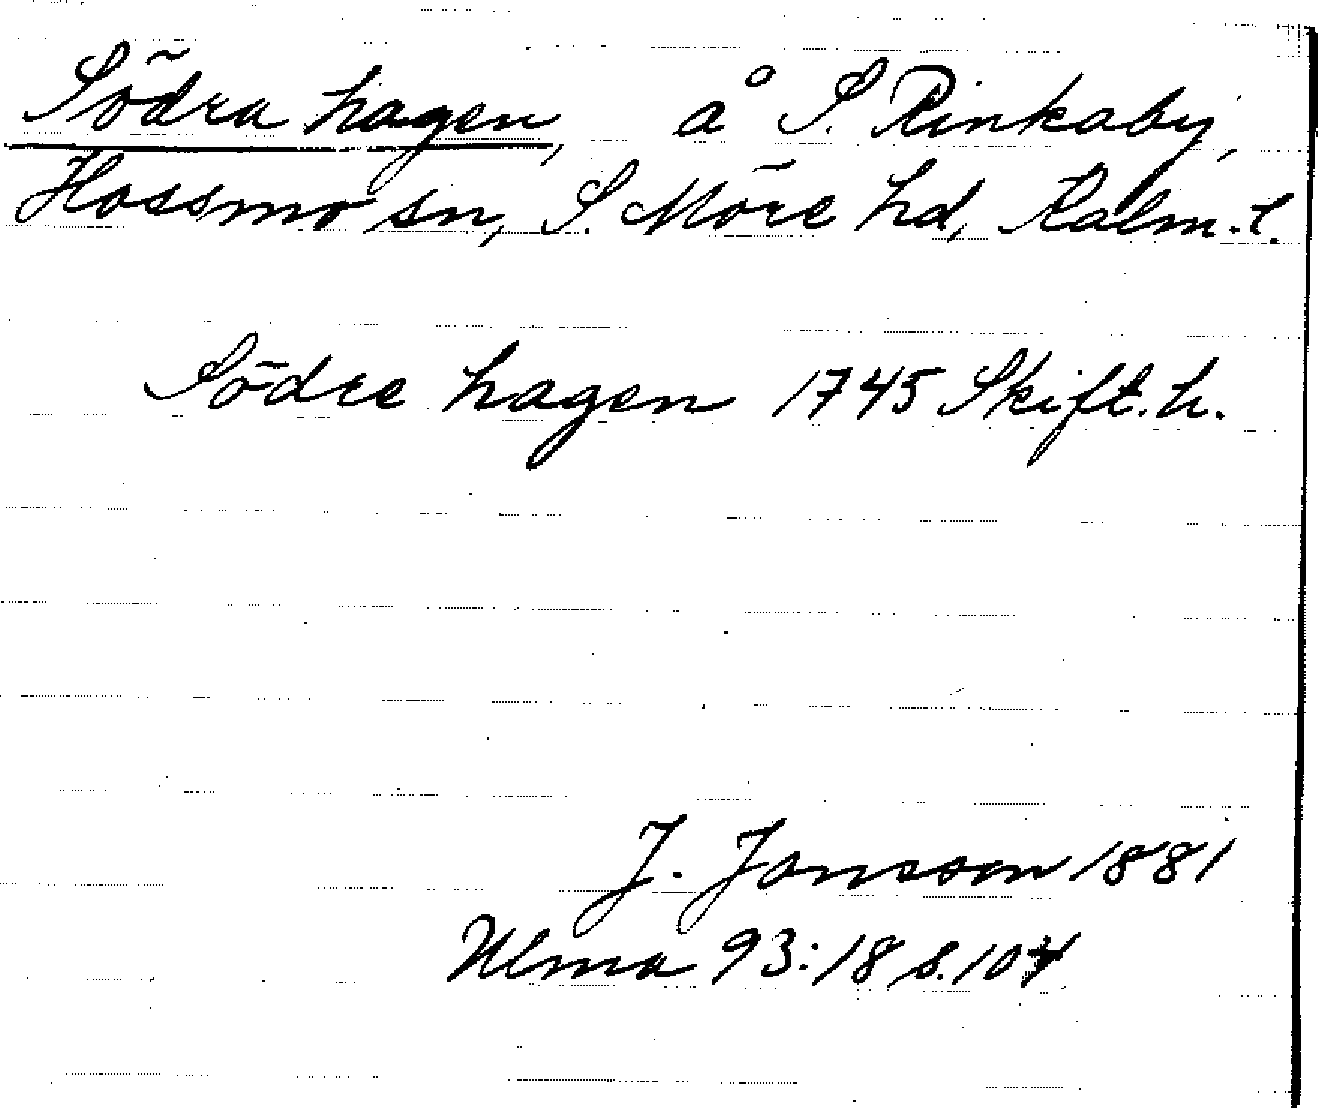 Södra hagen, å S. Rinkaby,
Hossmo sn, S. Möre hd, Kalm. l.
Södre hagen 1745 Skift. h.
J. Jonsson 1881
Ulma 93:18 s. 104